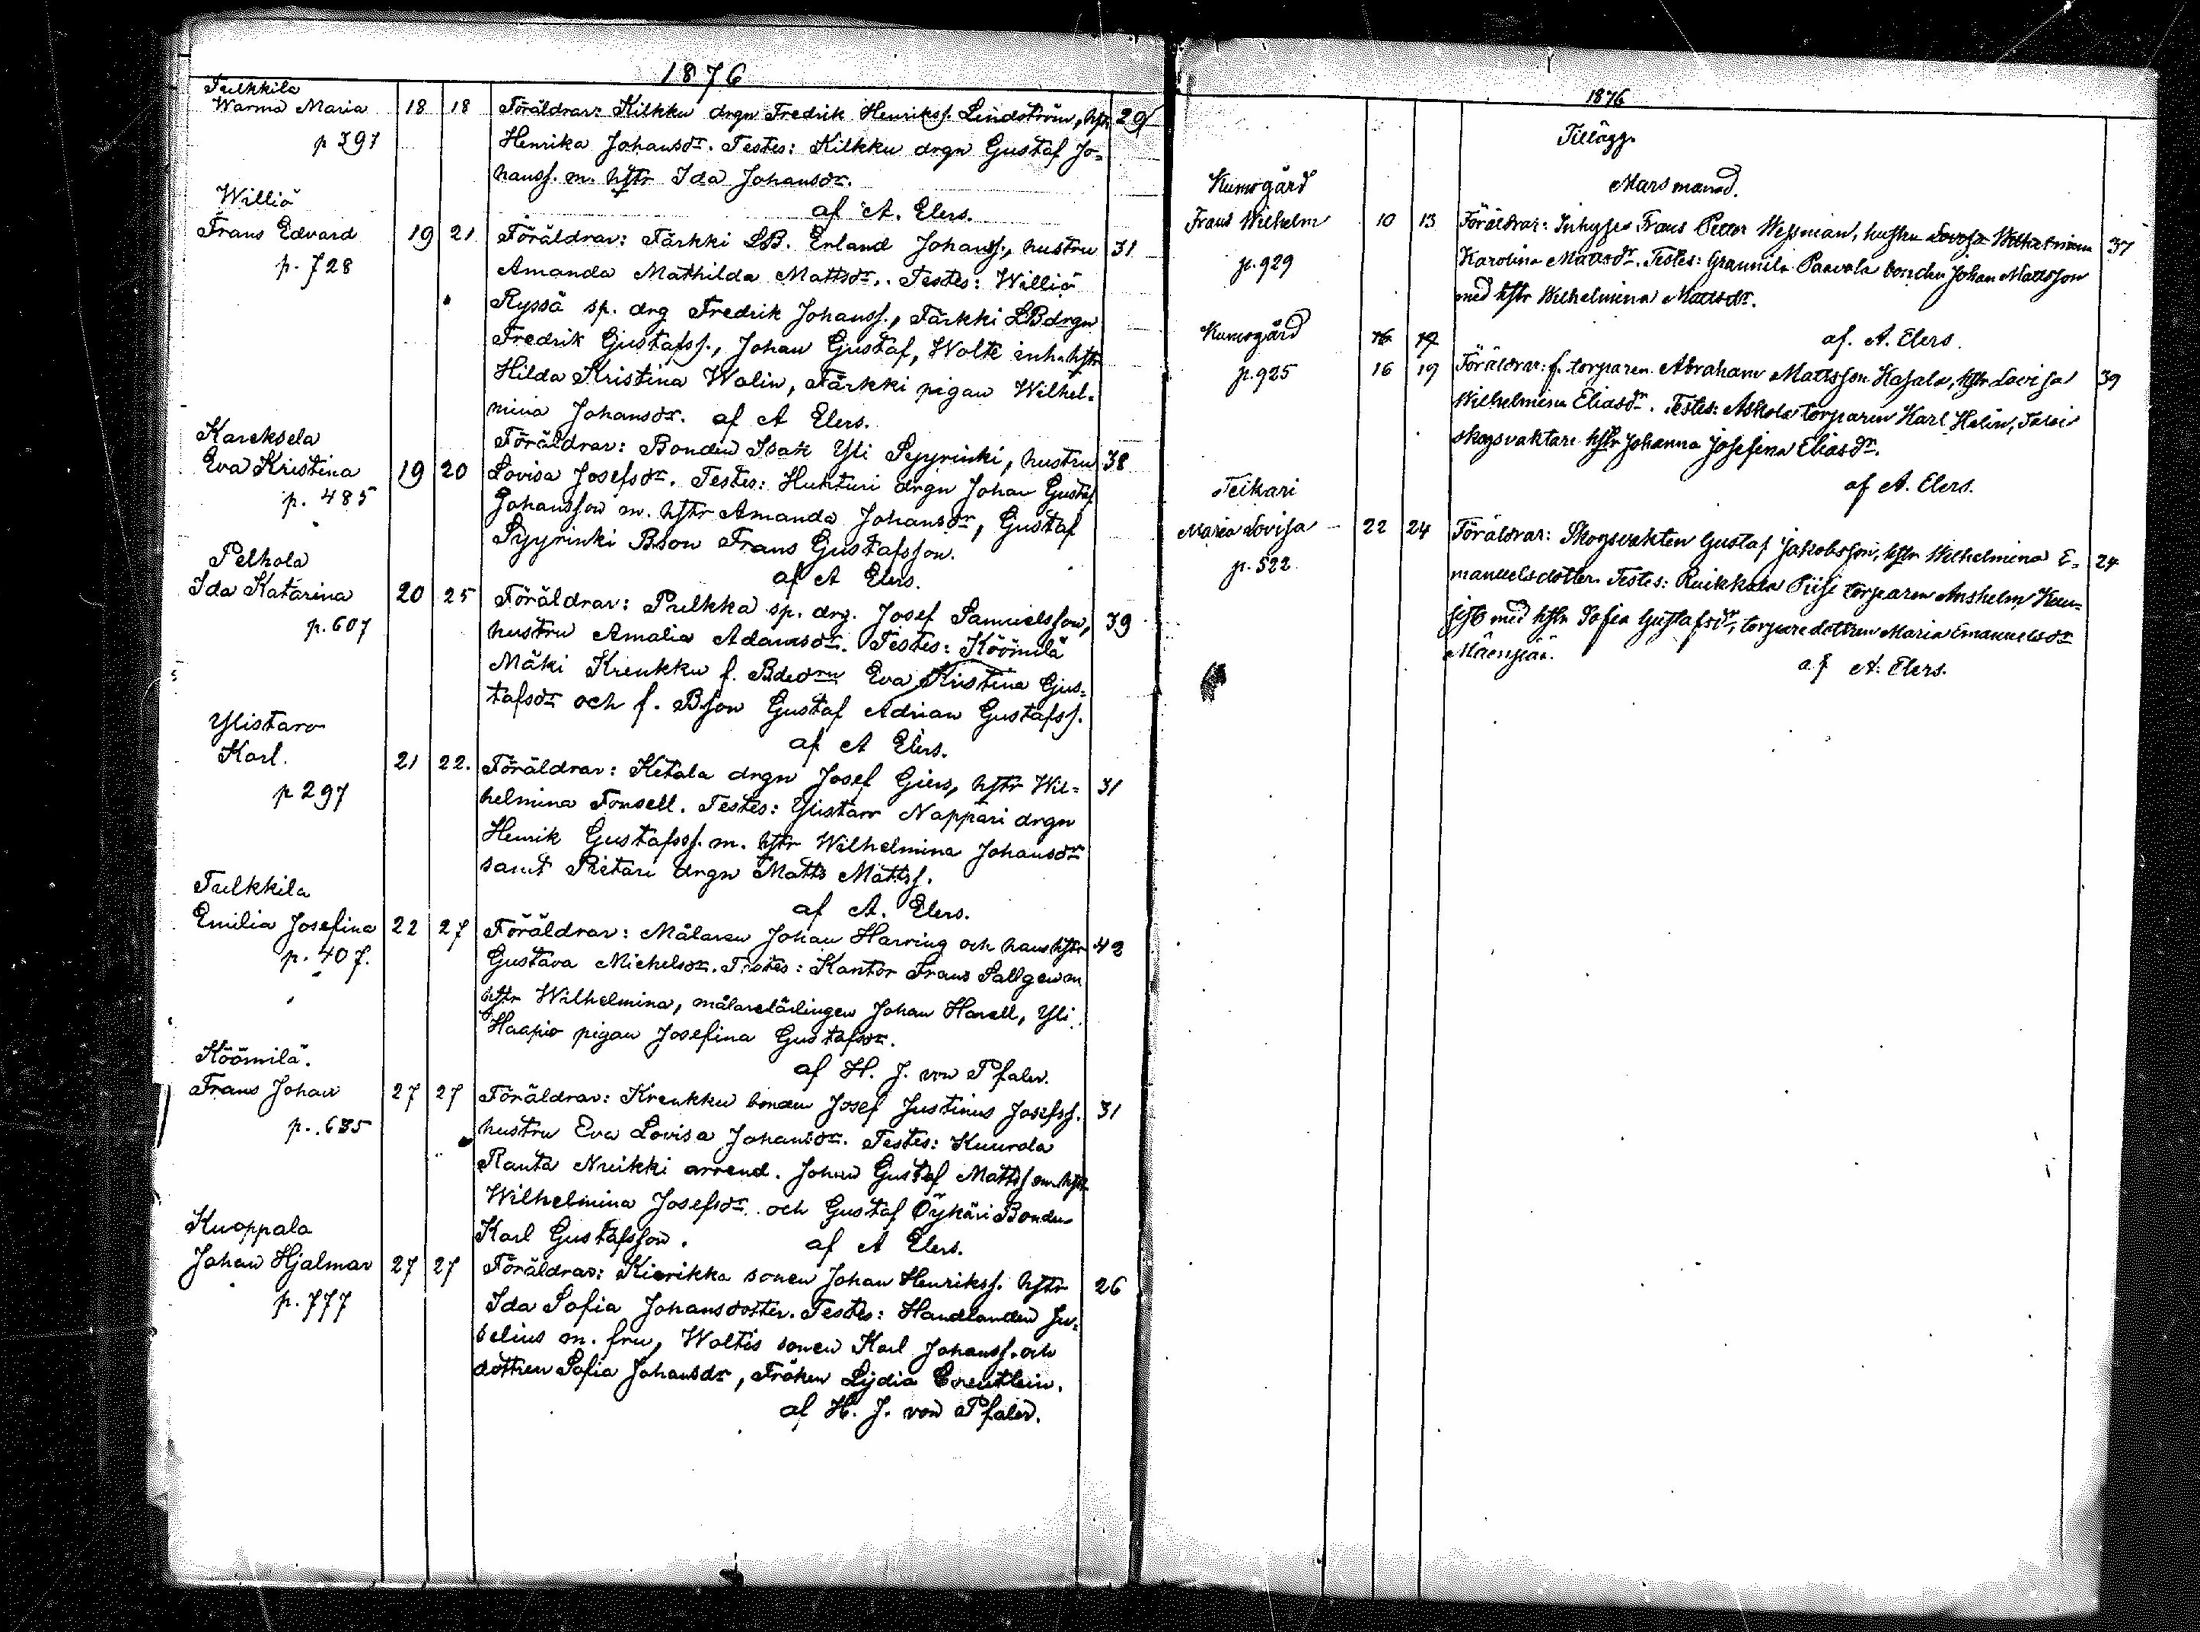 1876
Tulkkila
Warma Maria 18 18 Föräldrar: Kilkku drgn Fredrik Henrikss. Lindström, hstr 29
p 397 Henrika Johansdr. Testes: Kilkku drgn Gustaf Jo=
hanss. m. hstr Ida Johansdr.
af A. Elers.
Williö
Frans Edvard 19 21 Föräldrar: Färkki LB. Erland Johanss., hustru 31
p. 728 Amanda Mathilda Mattsdr. Testes: Williö
Ryssä sp. drg Fredrik Johanss., Färkki LBdrgn
Fredrik Gustafss., Johan Gustaf, Wolte inh. hstr
Hilda Kristina Walin, Färkki pigan Wilhel=
mina Johansdr. af A Elers.
Kareksela
Föräldrar: Bonden Isak Yli Syyrinki, hustru 38
Eva Kristina 19 20 Lovisa Josefsdr. Testes: Huhturi drgn Johan Gustaf
p. 485 Johansson m. hstr Amanda Johansdr, Gustaf
Syyrinki Bson Frans Gustafsson.
af A Elers.
Pelhola
Ida Katarina 20 25 Föräldrar: Pulkka sp. drg. Josef Samuelsson, 39
p. 607 hustru Amalia Adamsdr. Testes: Köömilä
Mäki Krenkku f. Bdedrn Eva Kristina Gus=
tafsdr och f. Bson Gustaf Adrian Gustafss.
af A Elers.
Ylistaro
Karl. 21 22. Föräldrar: Ketala drgn Josef Giers, hstr Wil= 31
p 297 helmina Fonsell. Testes: Ylistaro Nappari drgn
Henrik Gustafss. m. hstr Wilhelmina Johansdr
samt Pietari drgn Matts Mattss.
af A. Elers.
Tulkkila
Emilia Josefina 22 27 Föräldrar: Målaren Johan Harring och hans hstr 42
p. 407. Gustava Michelsdr. Testes: Kantor Frans Sallgen m
hstr Wilhelmina, målarelärlingen Johan Harell, Yli
Haapio pigan Josefina Gustafsdr.
af H. J. von Pfaler.
Köömilä.
Frans Johan 27 27 Föräldrar: Krenkku bonden Josef Justinus Josefss. 31
p. 635 hustru Eva Lovisa Johansdr. Testes: Kuurola
Ranta Nuikki arrend. Johan Gustaf Mattss m. hstr
Wilhelmina Josefsdr. och Gustaf Öykäri Bonden
Karl Gustafsson. af A Elers.
Kuoppala
Johan Hjalmar 27 27 Föräldrar: Kierikka sonen Johan Henrikss. hstr 26
p. 777 Ida Sofia Johansdotter. Testes: Handlanden Ju=
selius m. fru, Woltis sonen Karl Johanss. och
dottren Sofia Johansdr, Fröken Lydia Creutlein.
af H. J. von Pfaler.
1876
Tillägg.
Mars manad.
Kumogård
Frans Wilhelm 10 13 Föräldrar: Inhyses Frans Petter Wessman, hustru Lovisa Wilhelmina 37
p. 929 Karolina Mattsdr. Testes: Grannila Paavola bonden Johan Mattsson
med hstr Wilhelmina Mattsdr.
af. A. Elers.
Kumogård 16 19
p. 925 16 19 Föräldrar: f. torparen Abraham Mattsson Kasala, hstr Lovisa 39
Wilhelmina Eliasdr. Testes: Askola torparen Karl Helin,
skogsvaktare hstr Johanna Josefina Eliasdr.
af A. Elers.
Teikari
Maria Lovisa 22 24 Föräldrar: Skogsvakten Gustaf Jakobsson, hstr Wilhelmina E= 24
p. 522 manuelsdotter. Testes: Ruikkala Piise torparen Anshelm
med hstr Sofia Gustafsdr, torparedottren Maria Emanuelsdr
Mäenpää.
af A. Elers.